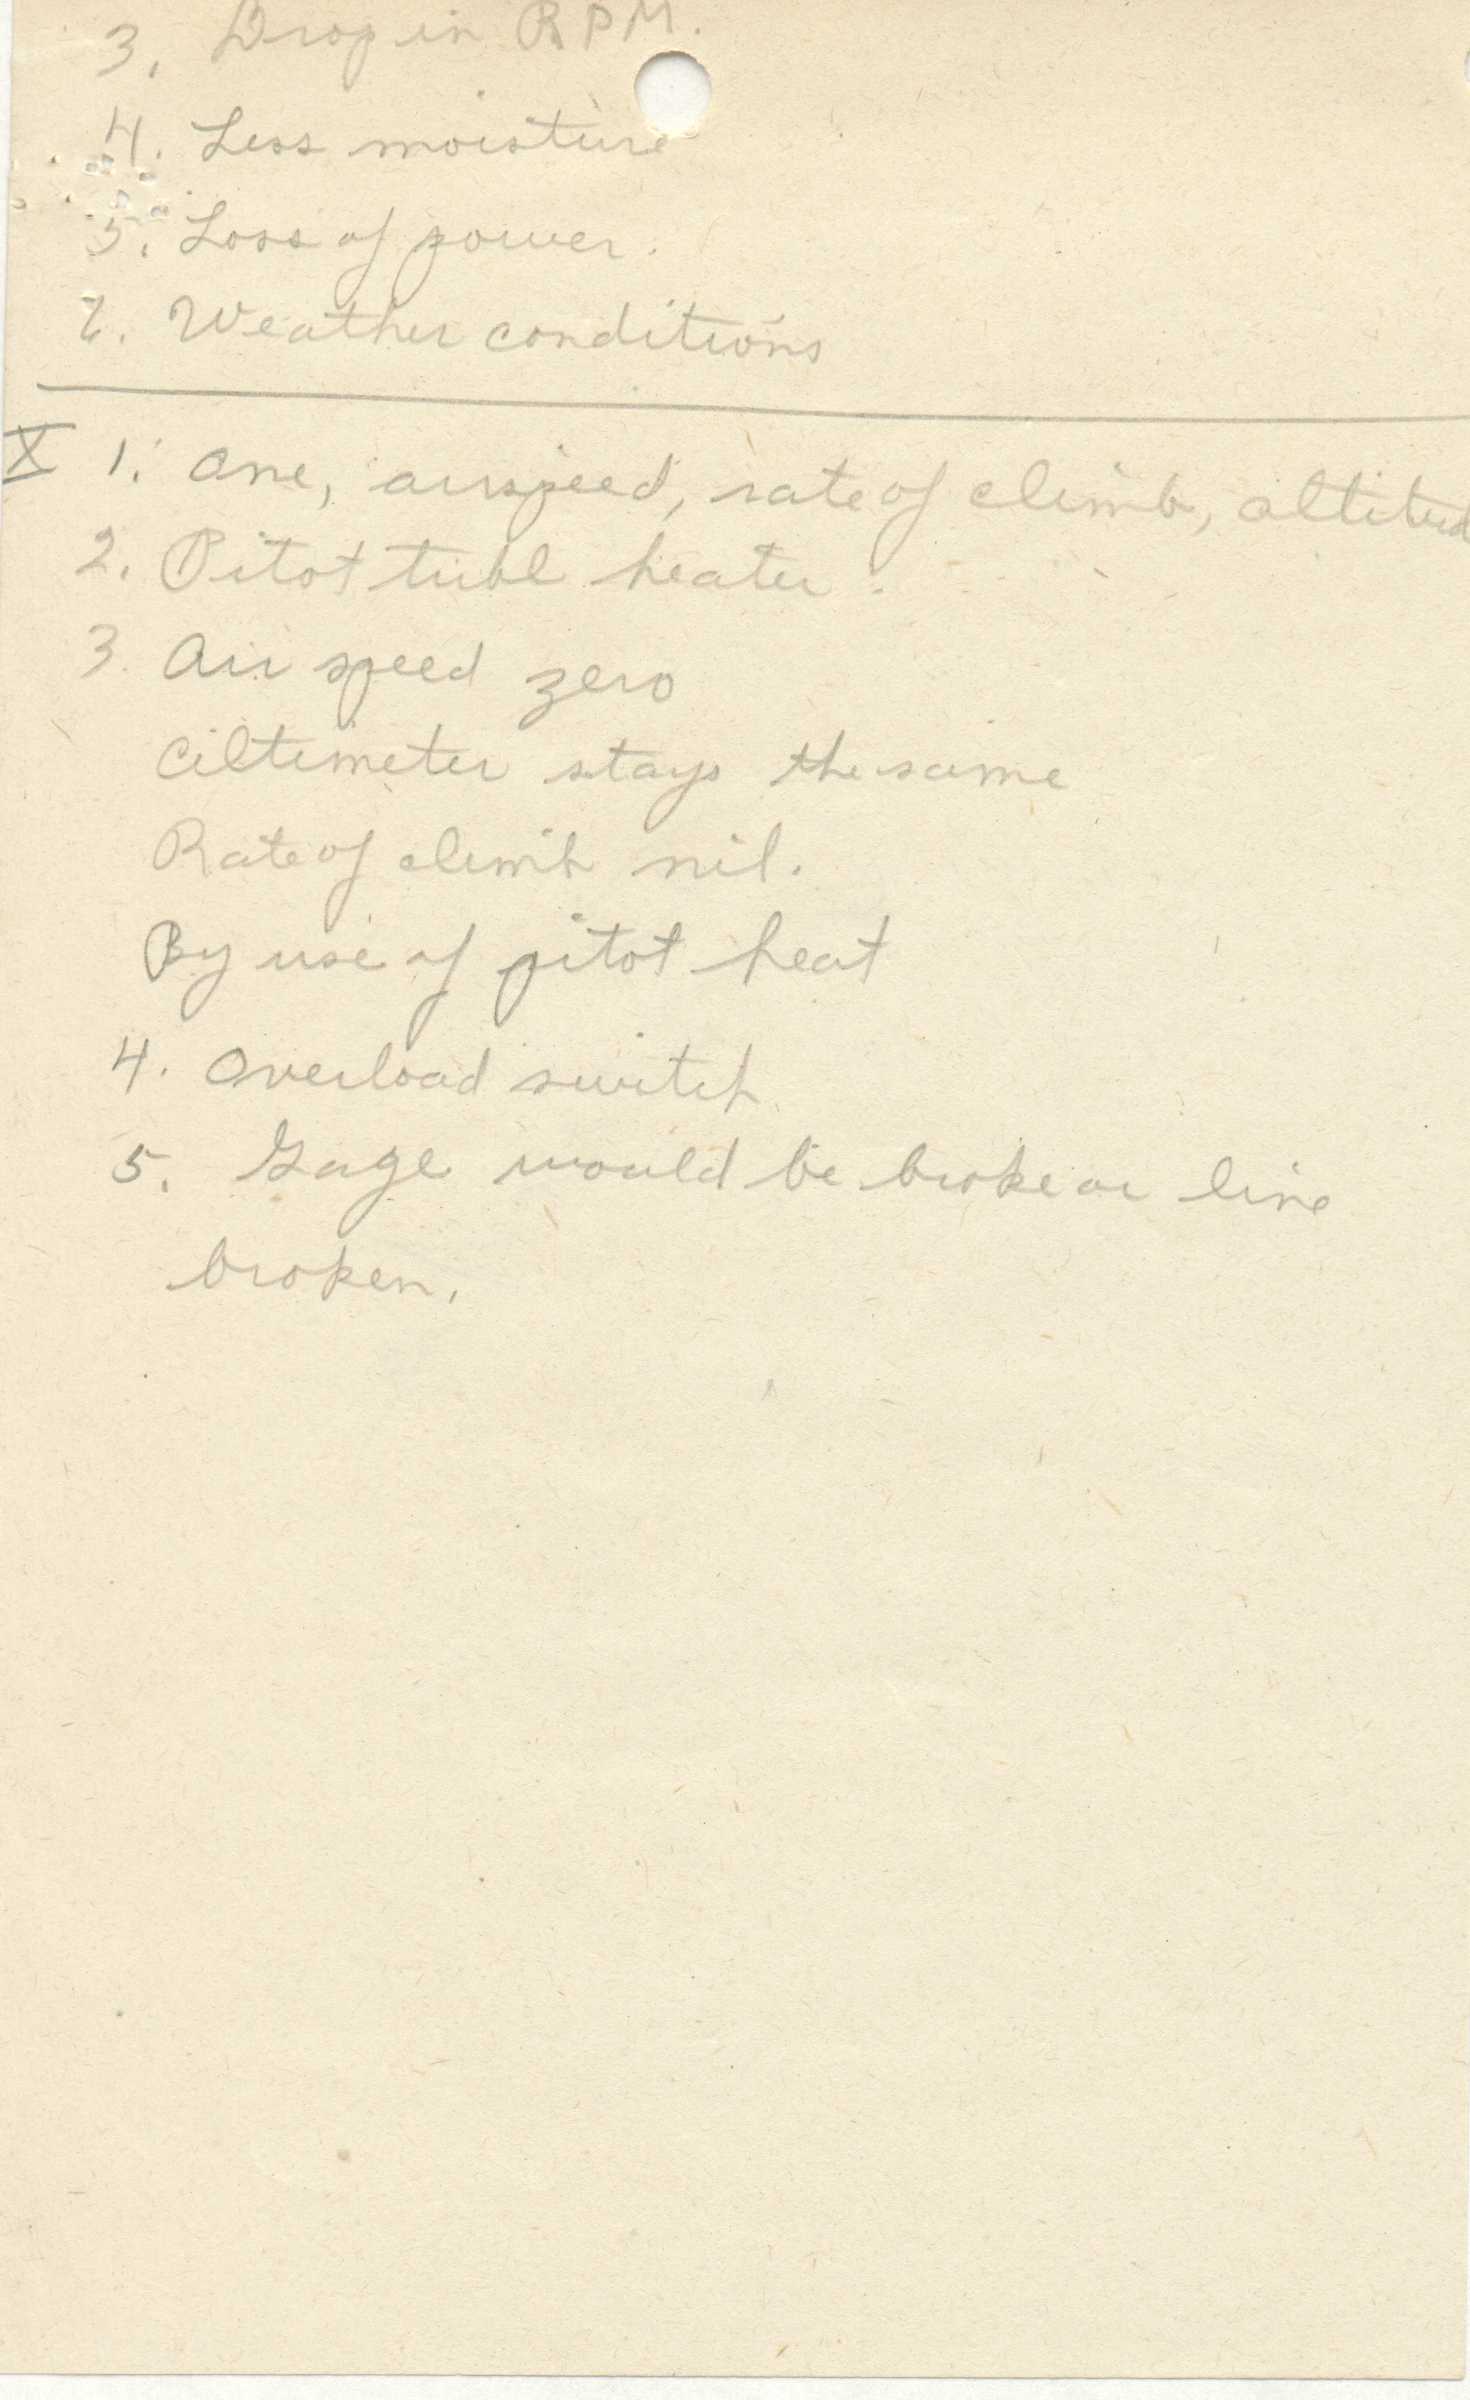 3. Drop in RPM.
4. Less moisture
5. Loss of power.
6. Weather conditions
X 1. One, airspeed, rate of climb, altitud
2. Pitot tube heater.
3. Air speed zero
altimeter stays the same
Rate of climb nil.
By use of pitot heat
4. Overload switch
5. Gage would be broke or line
broken.